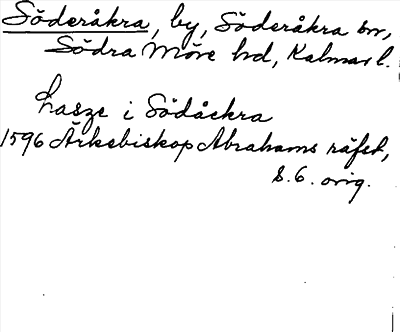 Söderåkra, by, Söderåkra sn,
Södra Möre hd, Kalmar l.
Lasze i Södåckra
1596 Ärkebiskop Abrahams räfst,
s. 6. orig.